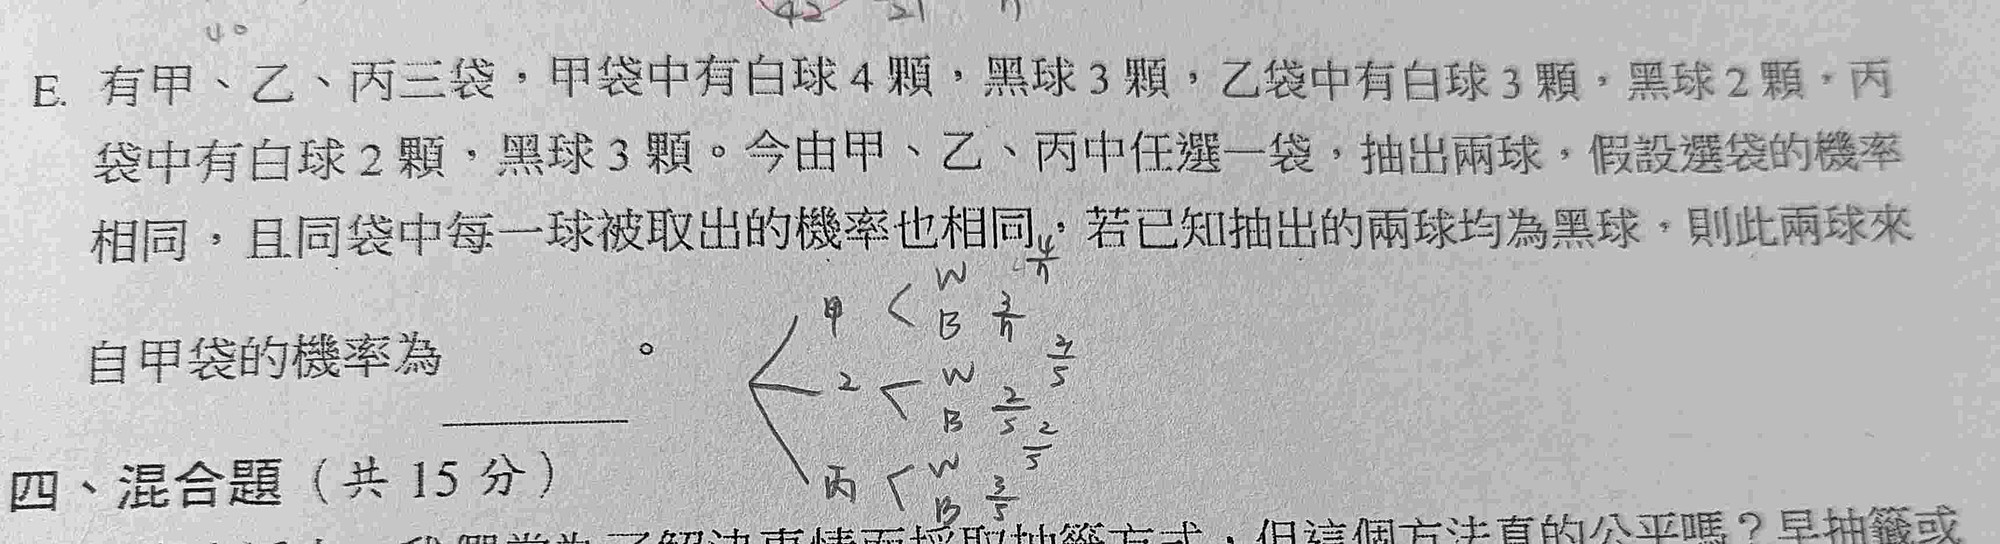 42 21 7
40
E. 有甲、乙、丙三袋，甲袋中有白球 4 顆，黑球 3 顆，乙袋中有白球 3 顆，黑球 2 顆，丙
袋中有白球 2 顆，黑球 3 顆。今由甲、乙、丙中任選一袋，抽出兩球，假設選袋的機率
相同，且同袋中每一球被取出的機率也相同，若已知抽出的兩球均為黑球，則此兩球來
自甲袋的機率為＿＿＿＿。
甲 W 4/7
B 3/7
乙 W 3/5
B 2/5
丙 W 2/5
B 3/5
四、混合題（共 15 分）
抽籤方式，但這個方法真的公平嗎？早抽籤或